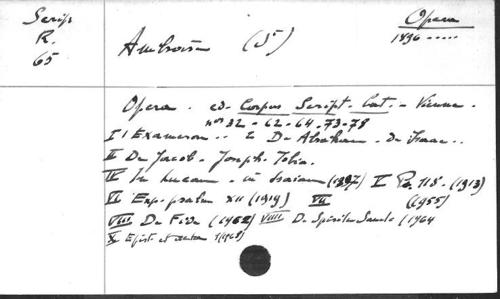 Script
R.
65
Ambroise (St)
Opera
1896 .....
Opera . ed. Corpus Script. Lat. - Vienne -
nos 32 - 62 - 64 - 73 - 78
I 1 Exameron .. 2 De Abraham . de Isaac ..
II De Jacob - Joseph. Tobia .
IV In Lucam . in Isaiam (1897) V Ps. 118 . (1913)
VI Exp. psalm XII (1919) VII (1955)
VIII De Fide (1962) VIIII De Spiritu Sancto (1964
X Epist. et 1 (1968)